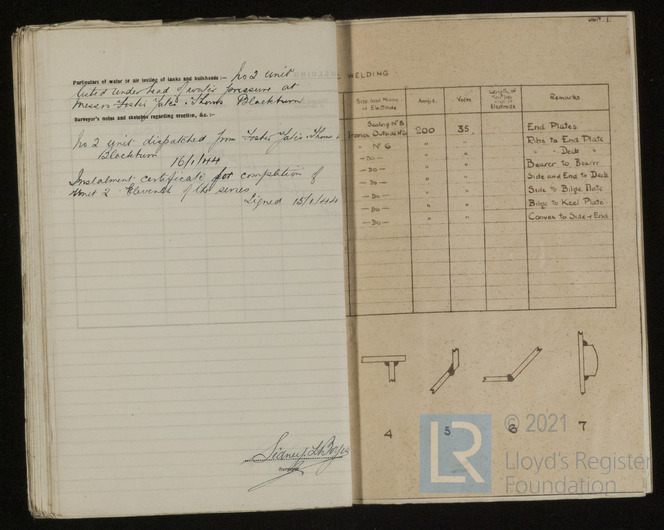 Particulars of water or air testing of tanks and bulkheads :— No 2 unit
tested under head of water pressure at
Messrs Foster Yates & Thoms Blackburn
Surveyor's notes and sketches regarding erection, &c. :—
No 2 unit dispatched from Foster Yates & Thoms
Blackburn 16/1/44
Instalment certificate for completion of
Unit 2 Eleventh of the series
Signed 15/1/44
Surveyor
Unit 1.
WELDING
Size and Make of Electrode
Amps.
Volts
Electrode
Remarks
N° 8
200 35 End Plates
" N° 6 " " Ribs to End Plate
— Do — " " " " Deck "
— Do — " " Bearer to Bearer
— Do — " " Side and End to Deck
— Do — " " Side to Bilge Plate
— Do — " " Bilge to Keel Plate
— Do — " " to Side & End
4 5 6 7
LR
© 2021
Lloyd's Register
Foundation